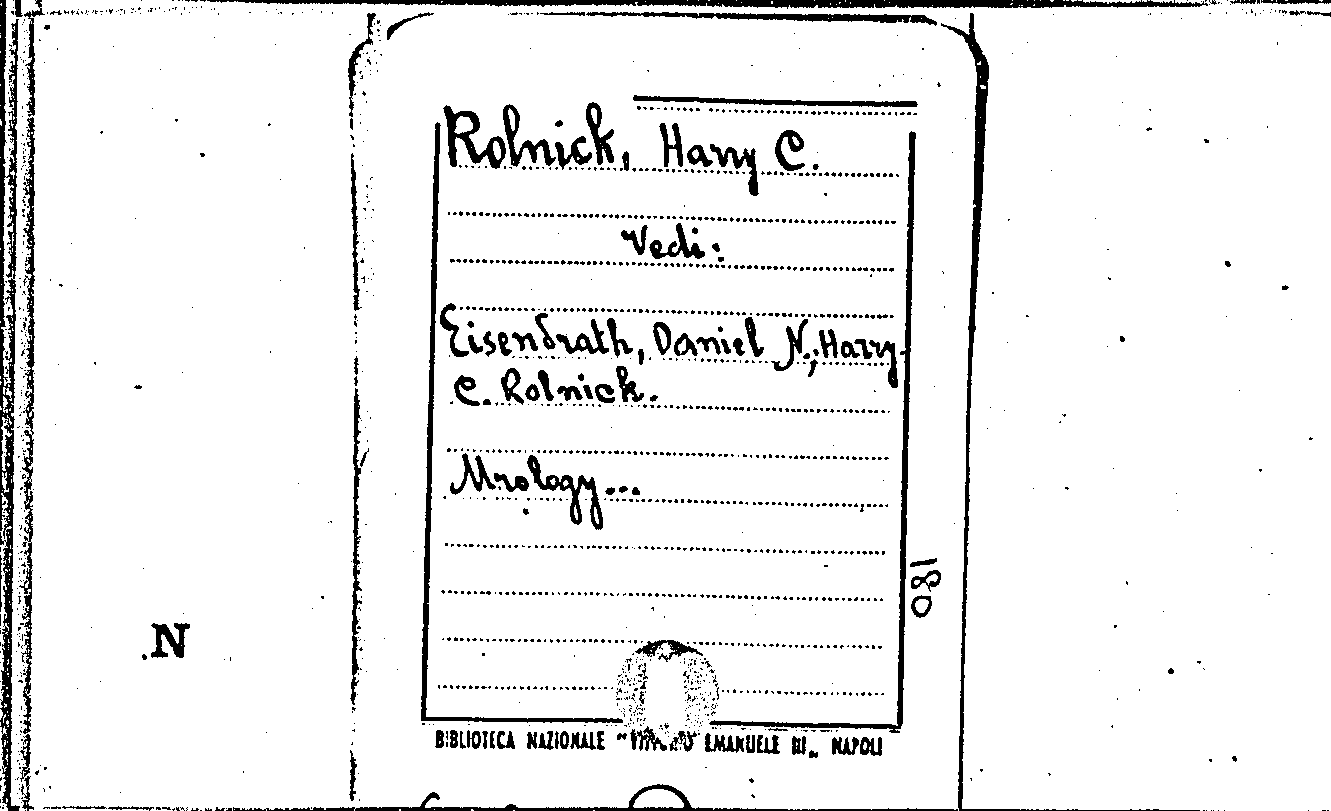 Rolnick, Harry C.
Vedi:
Eisendrath, Daniel N., Harry
C. Rolnick.
Urology...
180
N
BIBLIOTECA NAZIONALE "VITTORIO EMANUELE III„ NAPOLI